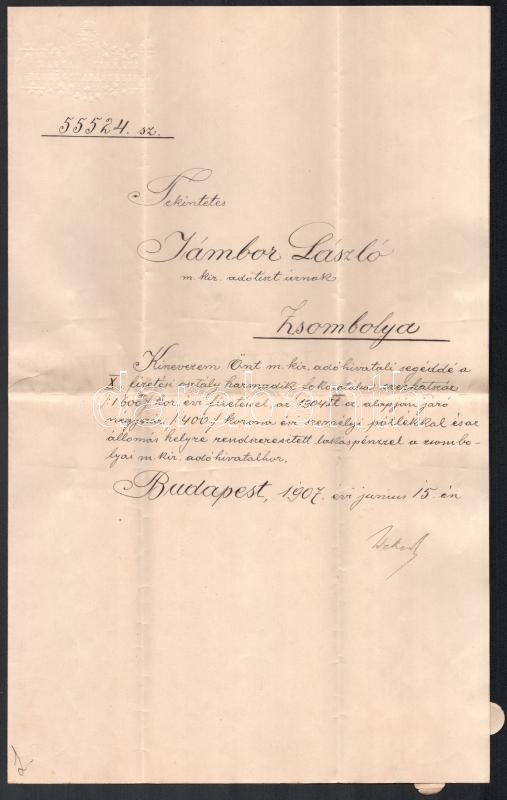 55524. sz.
Tekintetes
Jámbor László
m. kir. adótiszt úrnak
Zsombolya
Kinevezem Önt m. kir. adóhivatali segéddé a
X fizetési osztály harmadik fokozatába
1600 kor évi fizetéssel az 1904 alapján járó
négyszáz /:400:/ korona évi személyi pótlékkal és az
állomás helyre rendszeresített lakáspénzzel a zsombo-
lyai m. kir. adóhivatalhoz.
Budapest, 1907. évi junius 15.-én